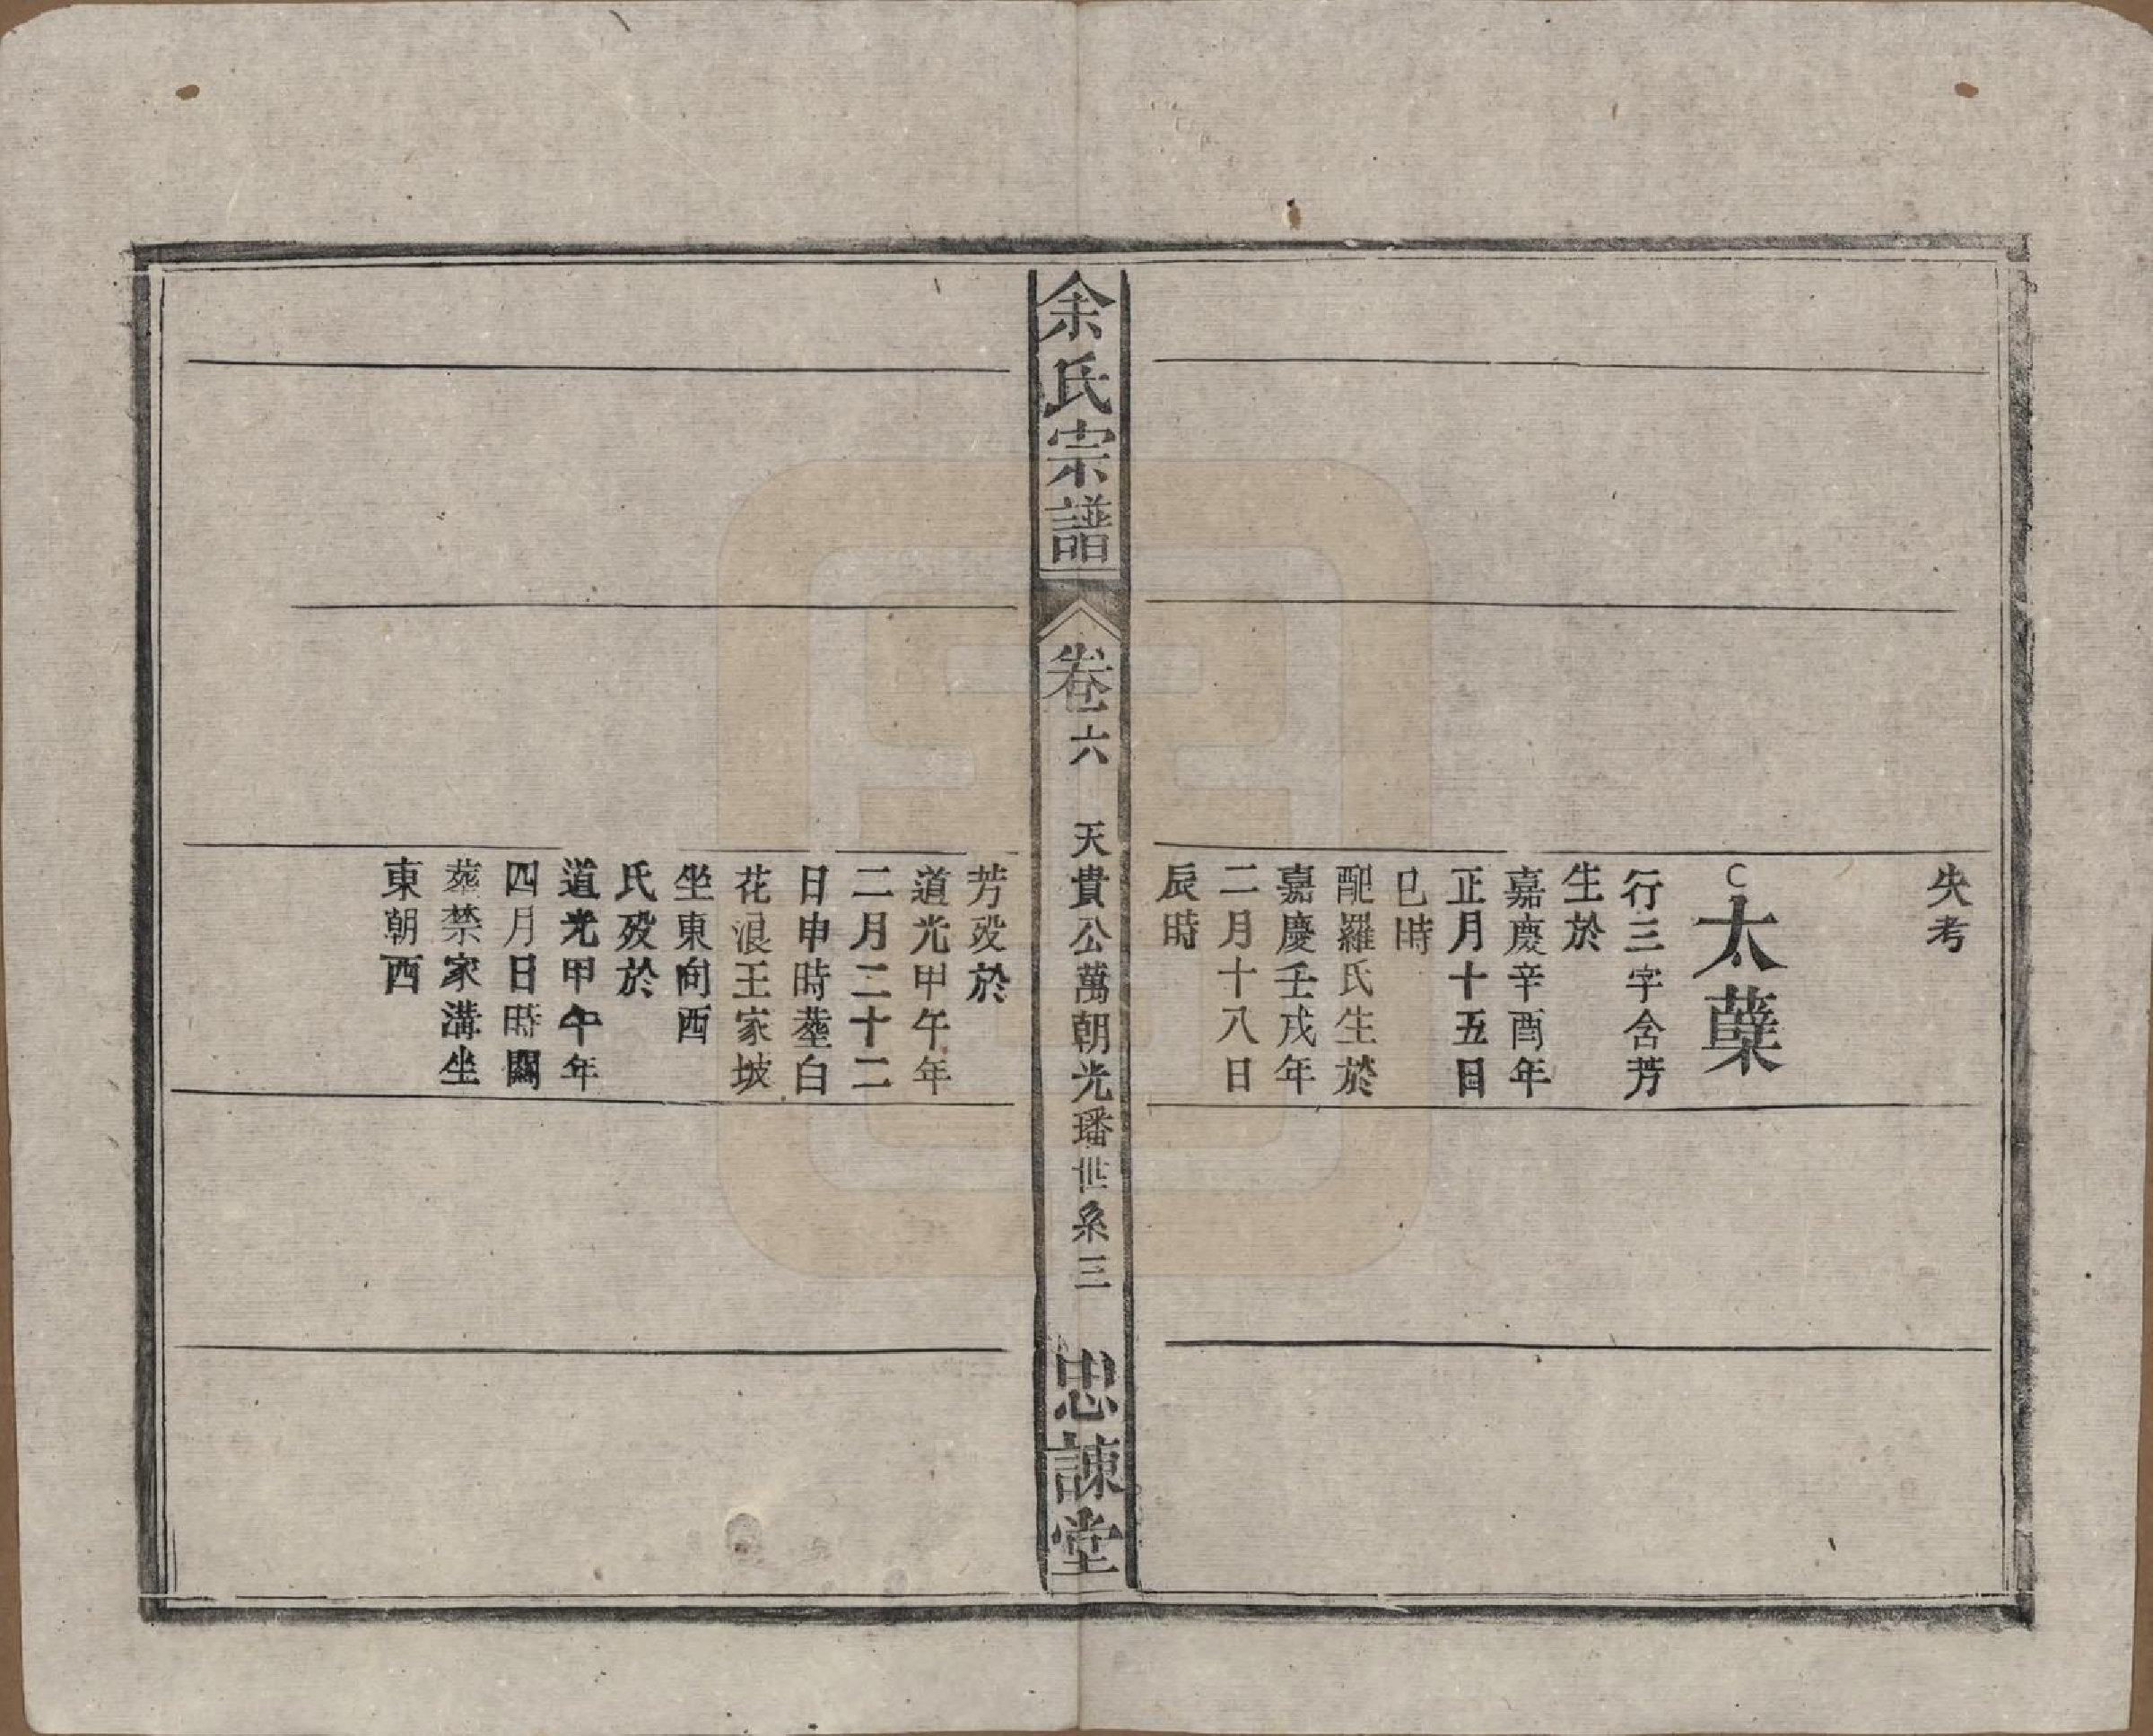 失考
太蕖
行三字含芳
生於
嘉慶辛酉年
正月十五日
巳時
配羅氏生於
嘉慶壬戌年
二月十八日
辰時
余氏宗譜
卷六
天貴公萬朝光璠世系三
忠諫堂
芳歿於
道光甲午年
二月二十二
日申時塟白
花浪王家坡
坐東向西
氏歿於
道光甲午年
四月日時闕
葬禁家溝坐
東朝西